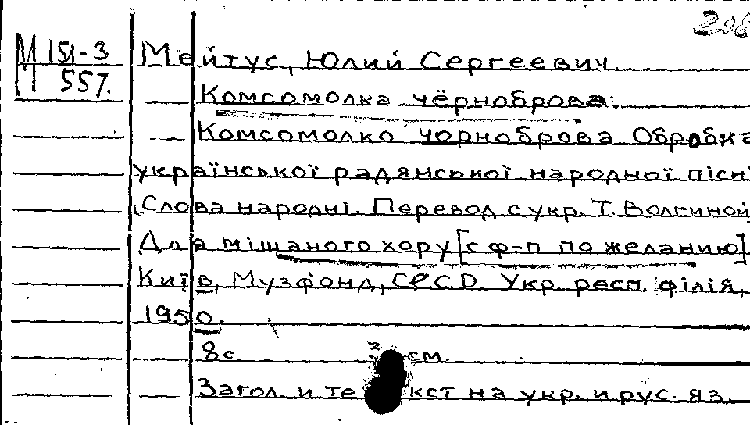 208
М 151-3
М 557.
Мейтус, Юлий Сергеевич.
Комсомолка чёрноброва.
Комсомолко чорноброва Обробка
української радянської народної пісні
Слова народні. Перевод с укр. Т. Волгиной
Для мішаного хору [с ф-п по желанию]
Київ, Музфонд, СРСР. Укр. респ. філія,
1950.
8с. см.
Загол. и текст на укр. и рус. яз.